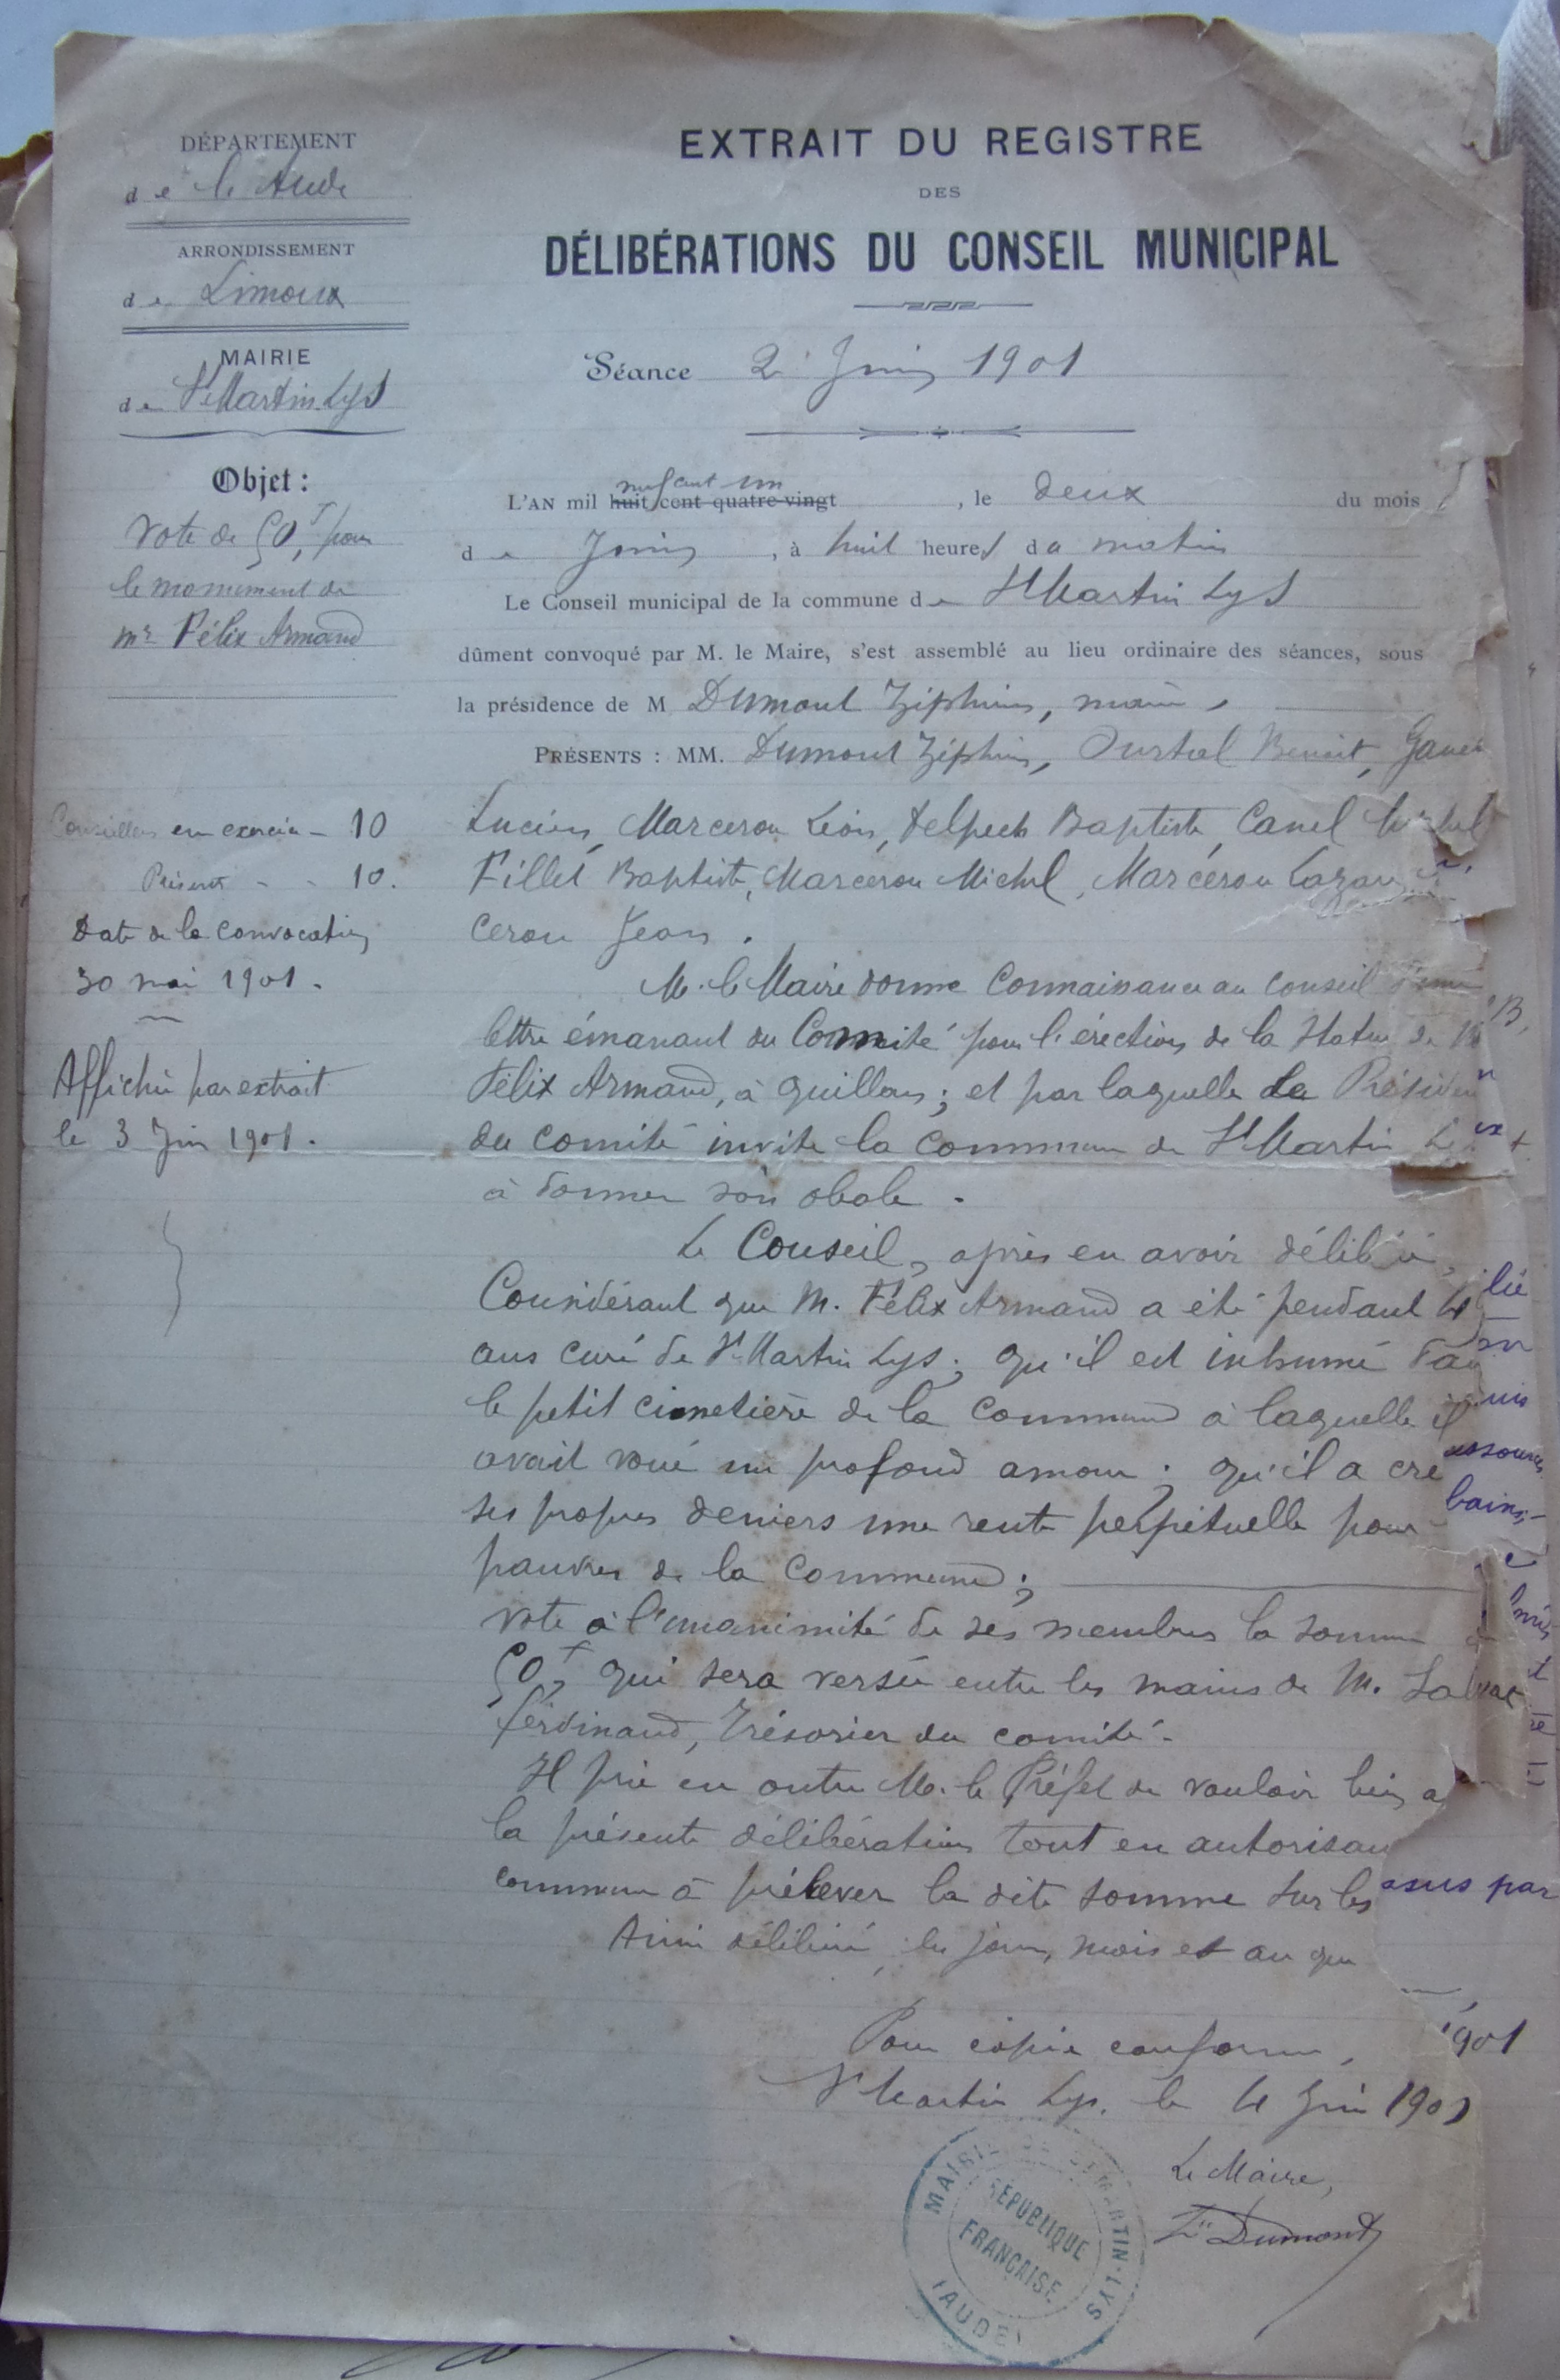 DÉPARTEMENT
de l'Aude
ARRONDISSEMENT
de Limoux
MAIRIE
de St Martin Lys
Objet :
Vote de 50f, pour
le monument de
Mr Félix Armand
Conseillers en exercice - 10
Présents - - 10.
Date de la convocation
30 mai 1901.
Affichée par extrait
le 3 Juin 1901.
EXTRAIT DU REGISTRE
DES
DÉLIBÉRATIONS DU CONSEIL MUNICIPAL
Séance 2 Juin 1901
neuf cent un
L'AN mil huit cent quatre-vingt , le deux du mois
de Juin , à huit heures du matin
Le Conseil municipal de la commune de St Martin Lys
dûment convoqué par M. le Maire, s'est assemblé au lieu ordinaire des séances, sous
la présidence de M Dumont Zéphirin, maire,
PRÉSENTS : MM. Dumont Zéphirin, Oustrel Benoit,
Lucien, Marcerou Léon, Delpech Baptiste, Canel Michel
Fillet Baptiste, Marcerou Michel, Marcerou
cerou Jean.
M. le Maire donne connaissance au conseil d'une
lettre émanant du Comité pour l'érection de la Statue de M
Félix Armand, à Quillan ; et par laquelle le Présiden
du comité invite la commune de St Martin L
à donner son obole.
Le Conseil, après en avoir délibéré,
Considérant que M. Félix Armand a été pendant
ans curé de St Martin Lys ; qu'il est inhumé dan
le petit cimetière de la commune à laquelle il
avait voué un profond amour ; qu'il a cré
ses propres deniers une rente perpétuelle pour
pauvres de la commune ;
vote à l'unanimité de ses membres la somme de
50f, qui sera versée entre les mains de M.
Ferdinand, Trésorier du comité.
Il prie en outre M. le Préfet de vouloir bien a
la présente délibération tout en autorisan
commune à prélever la dite somme sur les
Ainsi délibéré, les jour, mois et an que
Pour copie conforme,
St Martin Lys, le 4 Juin 1901
Le Maire,
Zin Dumont
MAIRIE DE ST MARTIN-LYS
RÉPUBLIQUE
FRANÇAISE
(AUDE)
lié
uis
bains,
asus par
1901